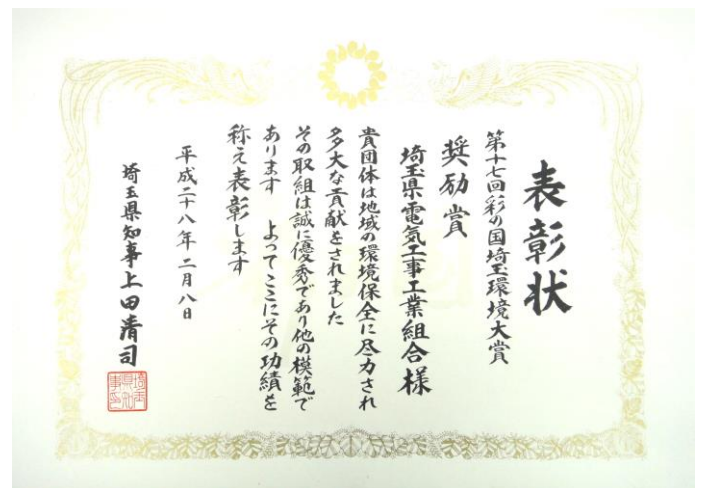 表彰状
第十七回彩の国埼玉環境大賞
奨励賞
埼玉県電気工事工業組合様
貴団体は地域の環境保全に尽力され
多大な貢献をされました
その取組は誠に優秀であり他の模範で
あります よってここにその功績を
称え表彰します
平成二十八年二月八日
埼玉県知事上田清司